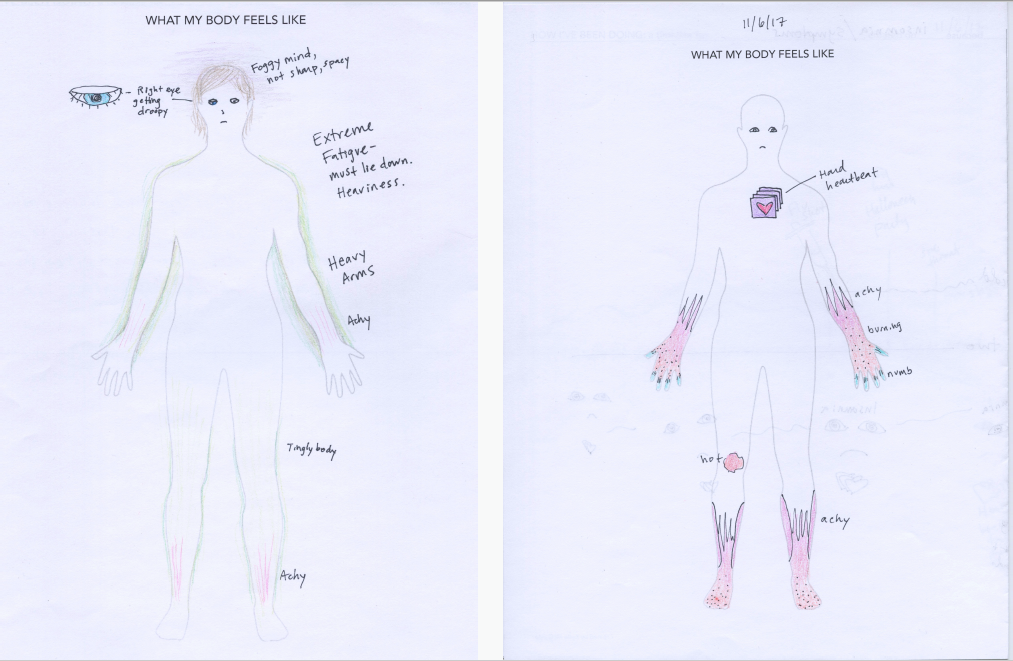 WHAT MY BODY FEELS LIKE
Foggy mind,
not sharp, spacy
Right eye
getting
droopy
Extreme
Fatigue-
must lie down.
Heaviness.
Heavy
Arms
Achy
Tingly body
Achy
11/6/17
WHAT MY BODY FEELS LIKE
Hard
heartbeat
achy
burning
numb
hot
achy